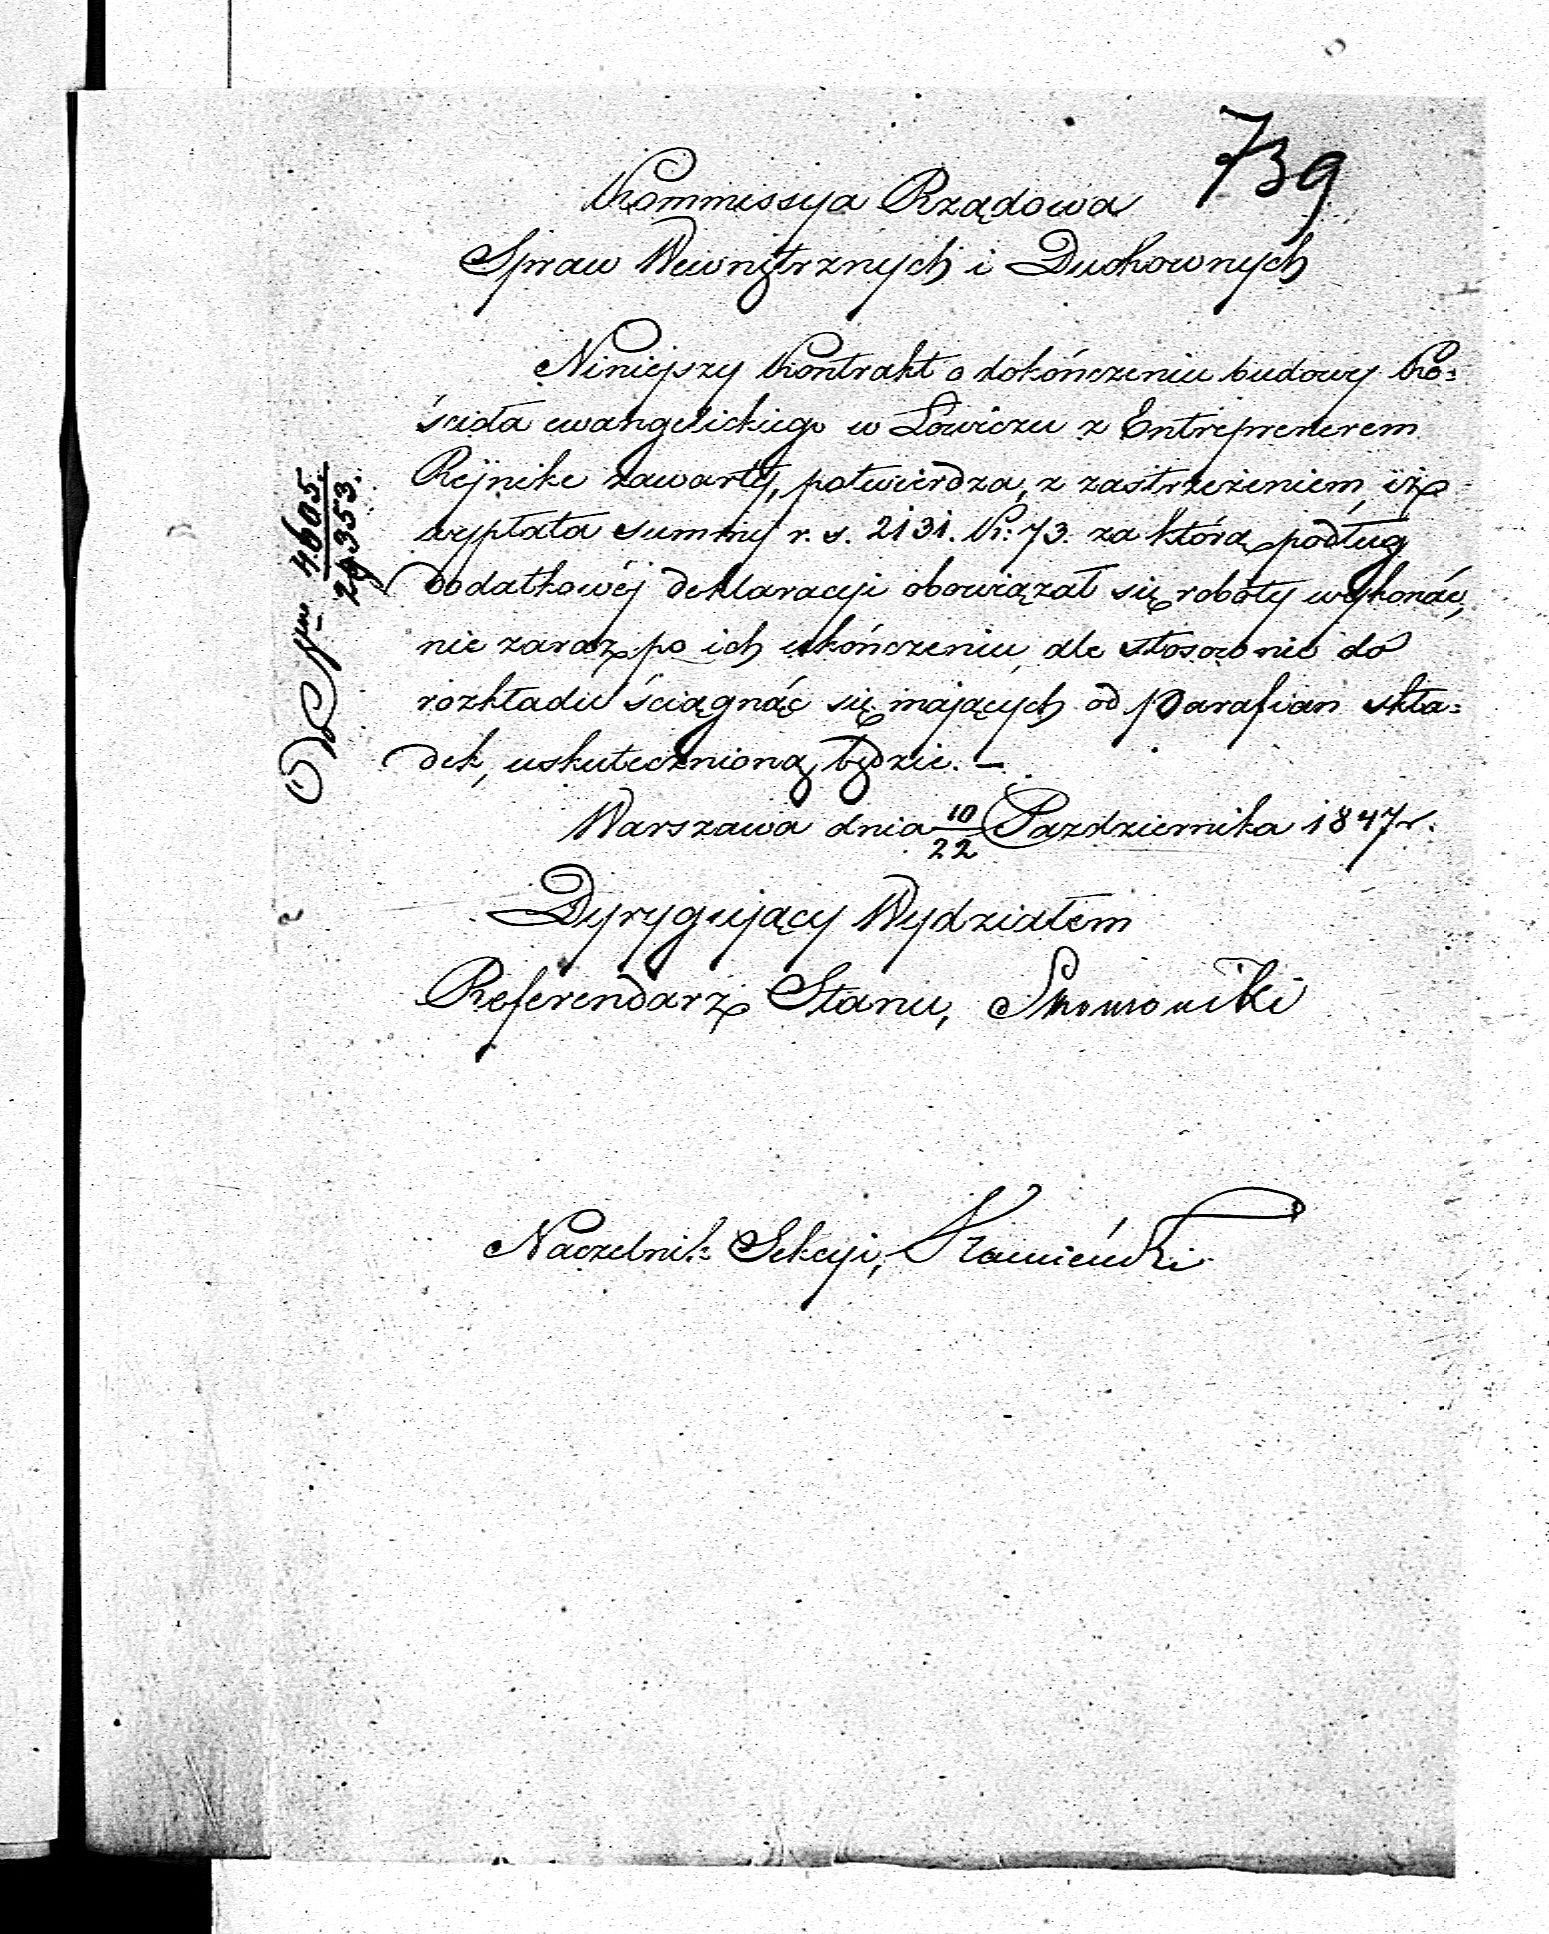 739
Kommissya Rządowa
Spraw Wewnętrznych i Duchownych
Niniejszy Kontrakt o dokończeniu budowy Ko=
ścioła ewangelickiego w Łowiczu z Entreprenerem
Rejnike zawarty, potwierdza, z zastrzeżeniem, iż
wypłata summy r. s. 2131. K: 73. za którą podług
dodatkowéj deklaracyi obowiązał się roboty wykonać,
nie zaraz po ich ukończeniu, ale stosownie do
rozkładu ściągnąć się mających od Parafian skła=
dek, uskutecznioną będzie. —
Warszawa dnia 10/22 Pazdziernika 1847 r.
Dyrygujący Wydziałem
Referendarz Stanu,
Naczelnik Sekcyi,
4605.